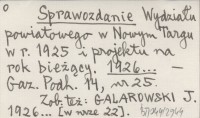 o Sprawozdanie Wydziału
powiatowego w Nowym Targu
w r. 1925 i projektu na
rok bieżący. 1926... —
Gaz. Podh. 14, nr 25.
Zob. też: GALAROWSKI J.
1926... [w nrze 22].